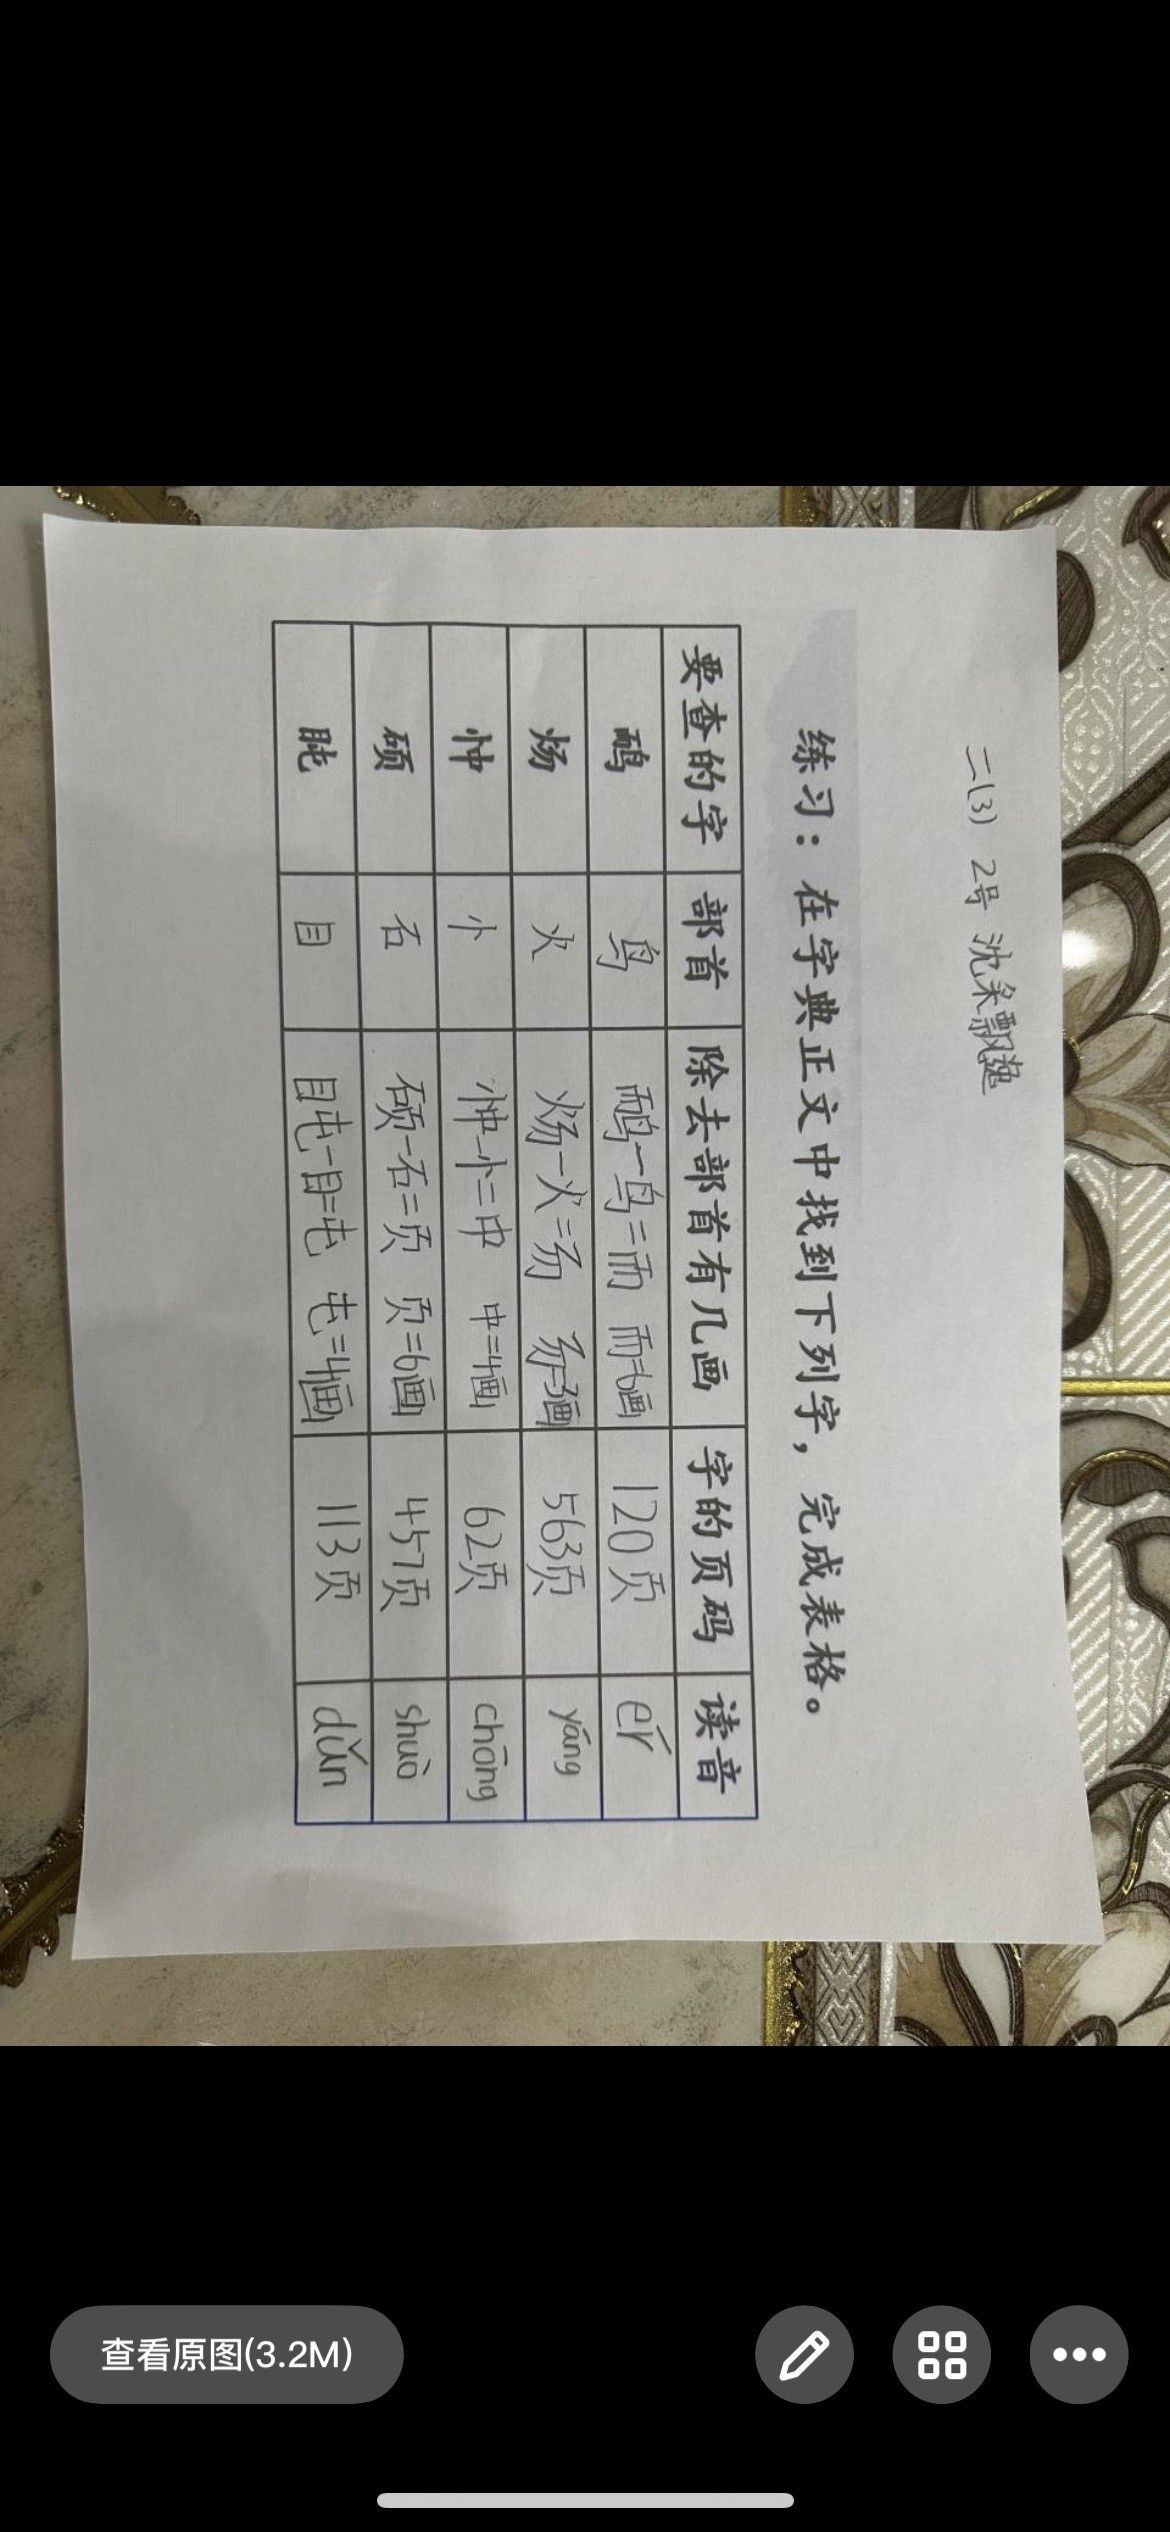 二(3) 2号 沈柔飘逸
练习：在字典正文中找到下列字，完成表格。
要查的字 部首 除去部首有几画 字的页码 读音
鸸 鸟 鸸-鸟=而 而=6画 120页 ér
炀 火 炀-火=𠃓 𠃓=3画 563页 yáng
忡 忄 忡-忄=中 中=4画 62页 chōng
硕 石 硕-石=页 页=6画 457页 shuò
盹 目 盹-目=屯 屯=4画 113页 dǔn
查看原图(3.2M)